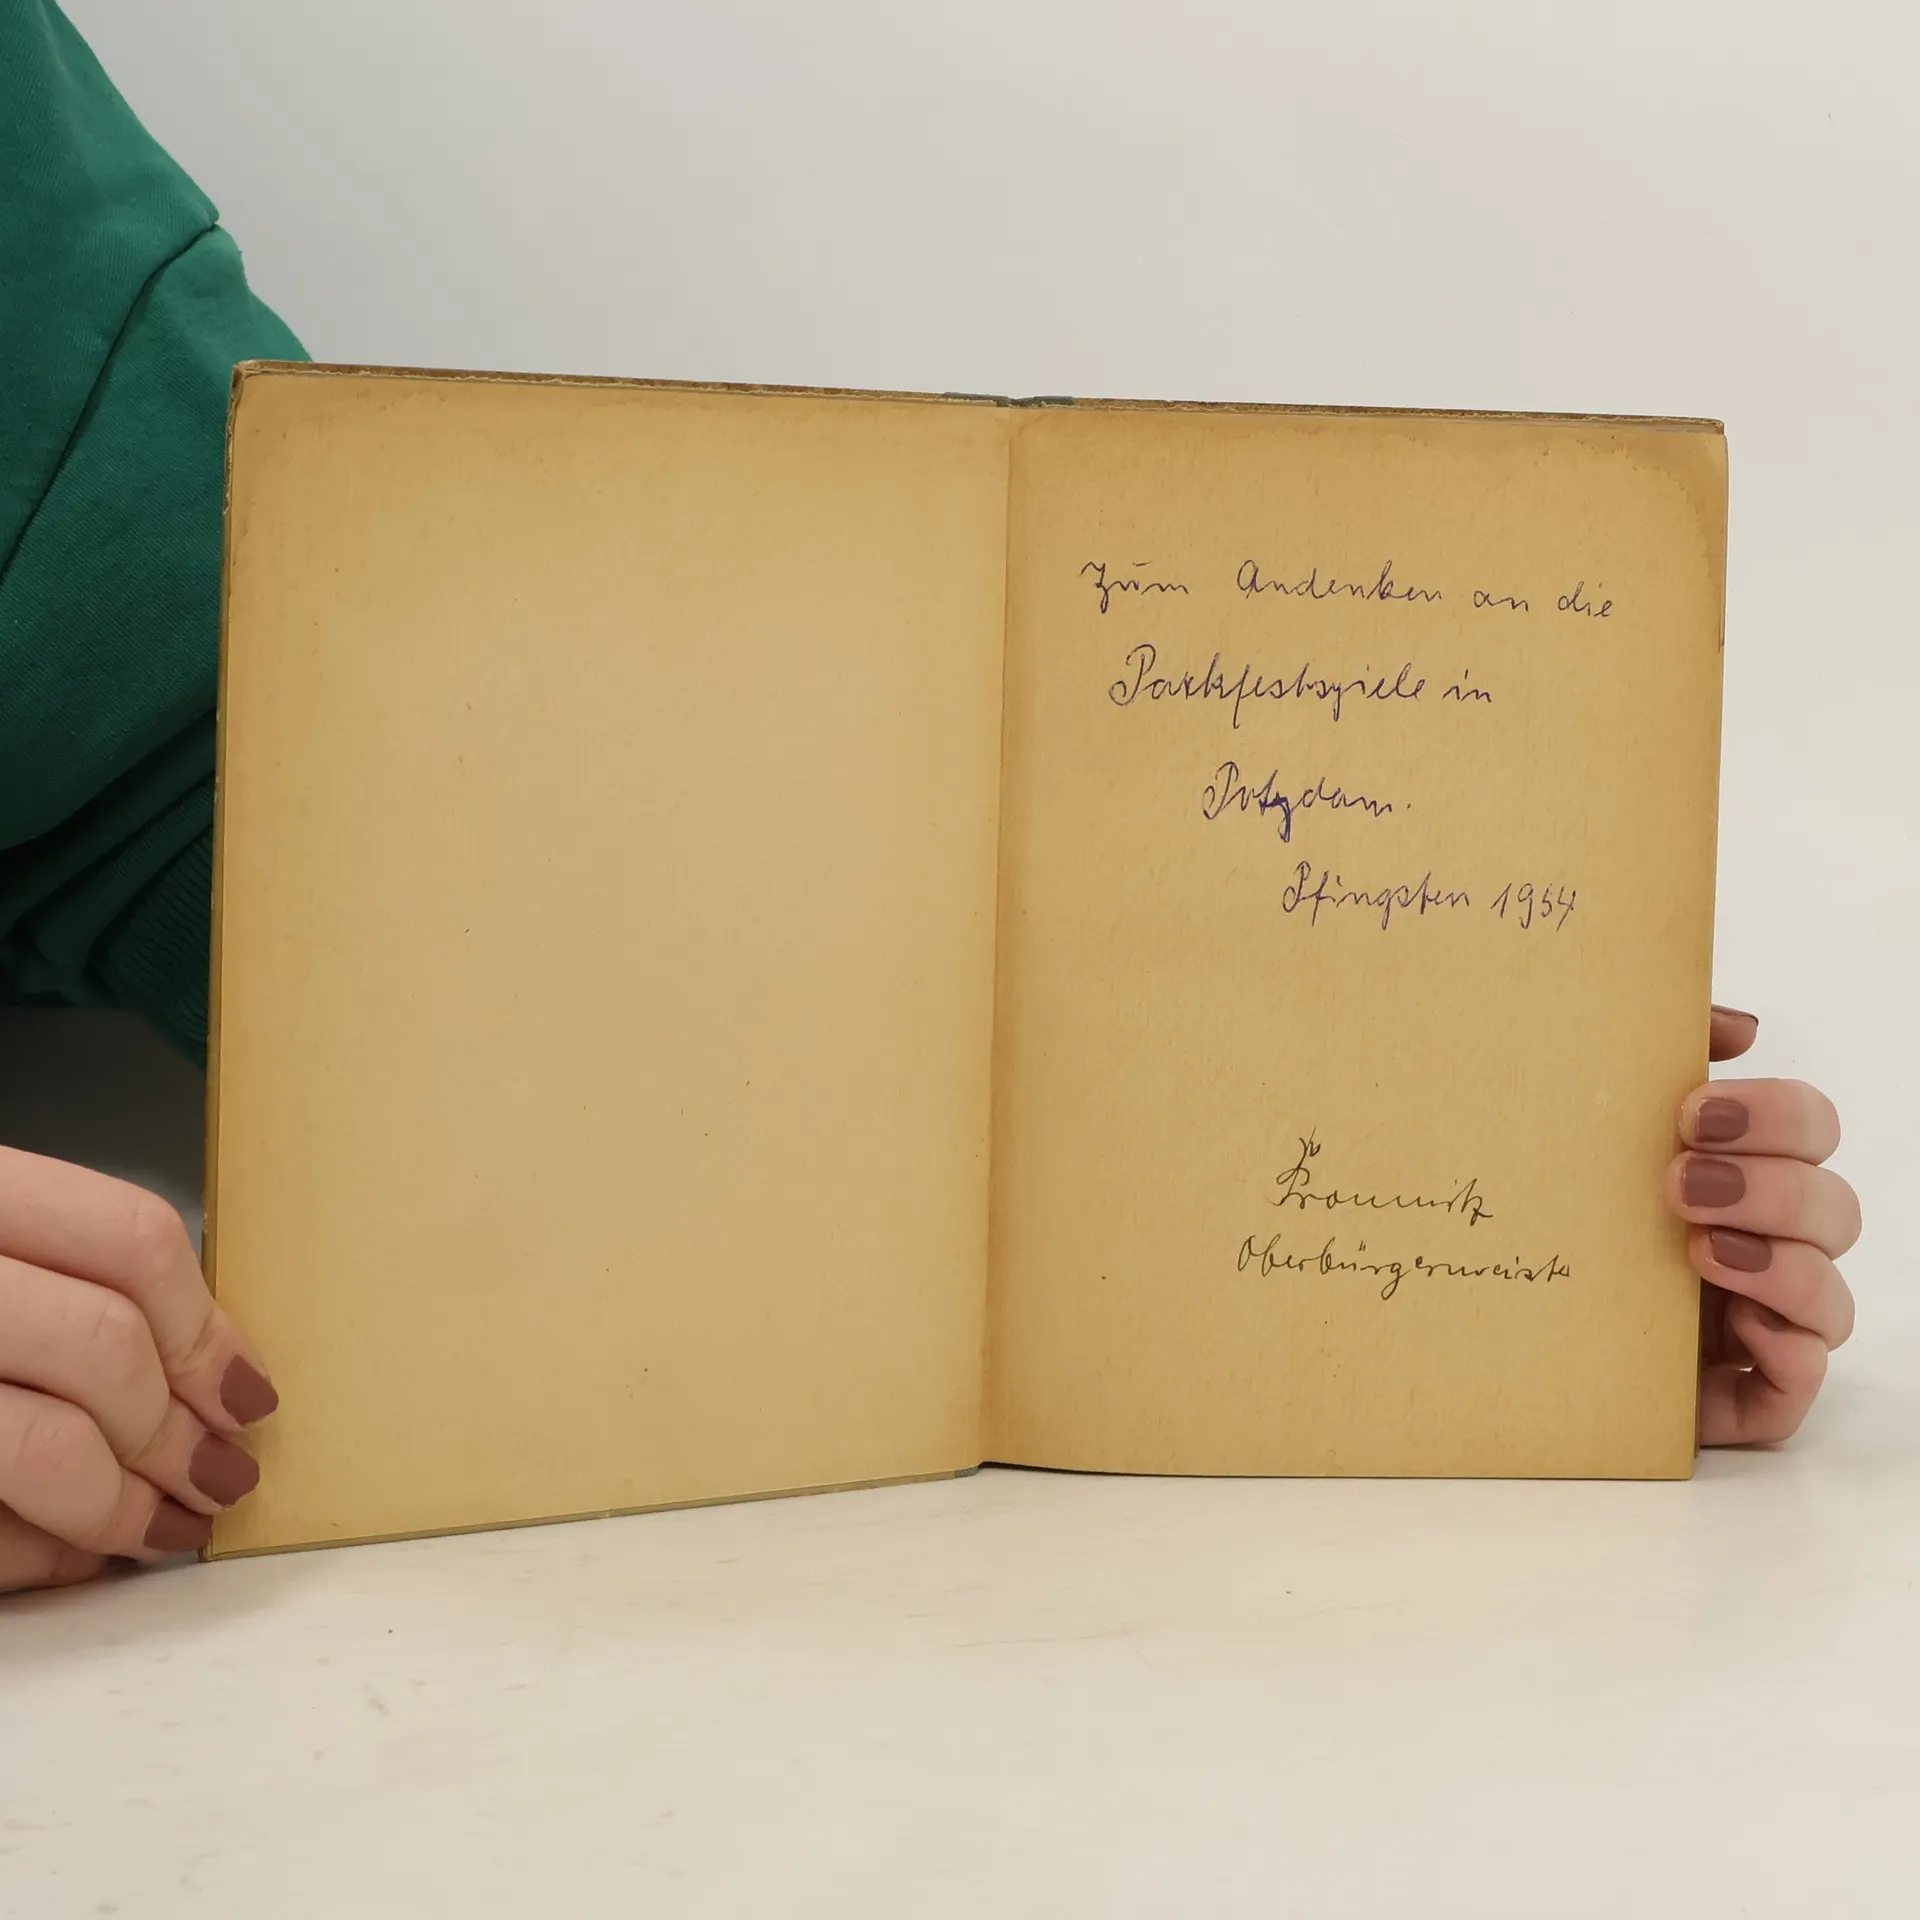 Zum Andenken an die
Parkfestspiele in
Potzdam.
Pfingsten 1954
Promnitz
Oberbürgermeister